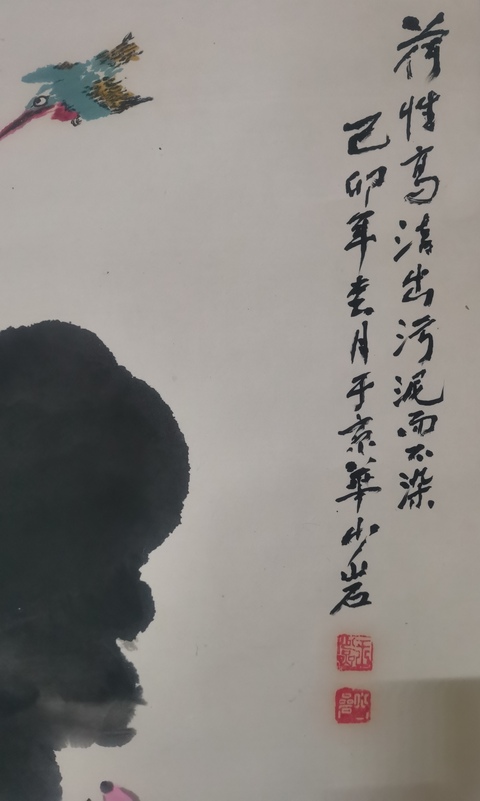 荷性高洁出污泥而不染
己卯年春月于京华少岩